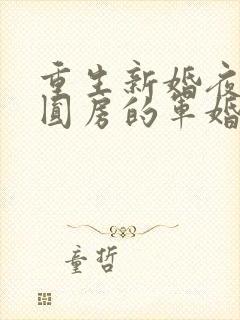 重生新婚夜
圆房的军婚
童哲